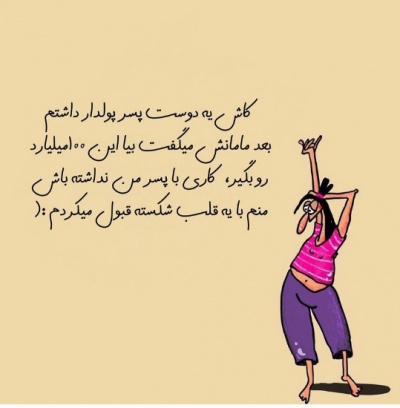 کاش یه دوست پسر پولدار داشتم
بعد مامانش میگفت بیا این ۱۰۰میلیارد
رو بگیر، کاری با پسر من نداشته باش
منم با یه قلب شکسته قبول میکردم :(